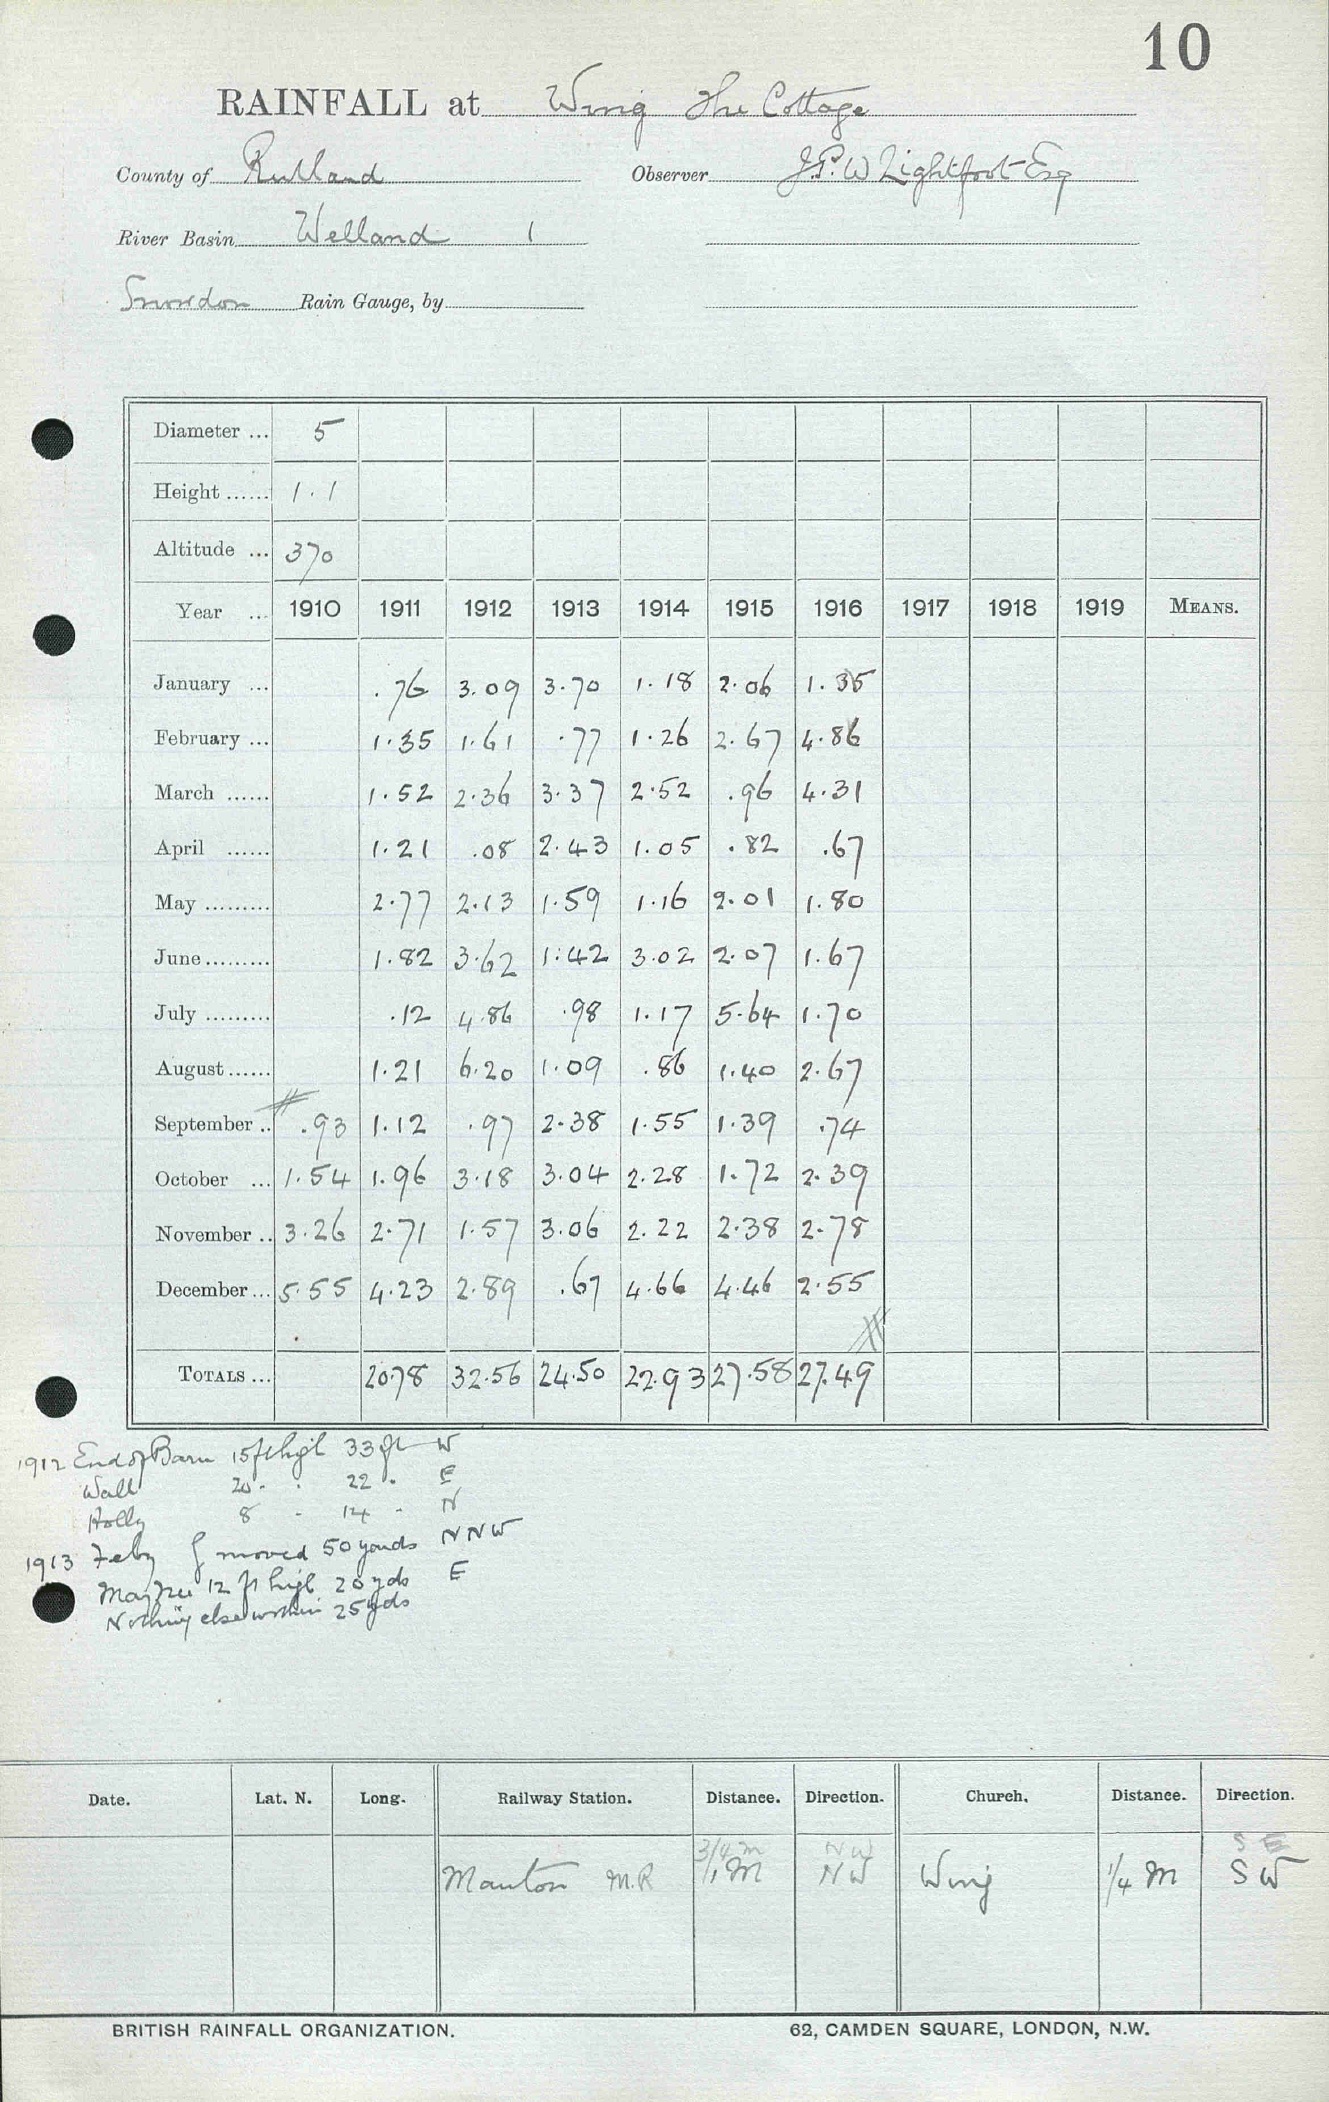 10
RAINFALL at Wing The Cottage
County of Rutland Observer J.P.W Lightfoot Esq
River Basin Welland 1
Snowdon Rain Gauge, by
Diameter ... 5
Height ...... 1.1
Altitude ... 370
Year ... 1910 1911 1912 1913 1914 1915 1916 1917 1918 1919 MEANS.
January ... .76 3.09 3.70 1.18 2.06 1.35
February ... 1.35 1.61 .77 1.26 2.67 4.86
March ...... 1.52 2.36 3.37 2.52 .96 4.31
April ...... 1.21 .08 2.43 1.05 .82 .67
May ......... 2.77 2.13 1.59 1.16 2.01 1.80
June ......... 1.82 3.62 1.42 3.02 2.07 1.67
July ......... .12 4.86 .98 1.17 5.64 1.70
August ...... 1.21 6.20 1.09 .86 1.40 2.67
September .. .93 1.12 .97 2.38 1.55 1.39 .74
October ... 1.54 1.96 3.18 3.04 2.28 1.72 2.39
November .. 3.26 2.71 1.57 3.06 2.22 2.38 2.78
December ... 5.55 4.23 2.89 .67 4.66 4.46 2.55
TOTALS ... 20.78 32.56 24.50 22.93 27.58 27.49
1912 End of Barn 15 ft high 33 ft W
Wall 20 " 22 " E
Holly 8 - 14 - N
1913 Feby G moved 50 yards NNW
May Tree 12 ft high 20 yds E
Nothing else within 25 yds
Date. Lat. N. Long. Railway Station. Distance. Direction. Church. Distance. Direction.
3/4 m NW S E
Manton M.R 1 M NW Wing 1/4 M SW
BRITISH RAINFALL ORGANIZATION. 62, CAMDEN SQUARE, LONDON, N.W.